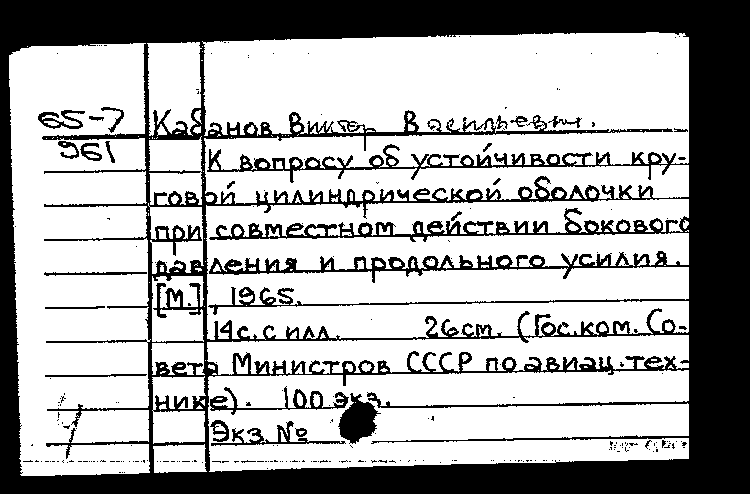 65-7 Кабанов, Виктор Васильевич.
961
К вопросу об устойчивости кру-
говой цилиндрической оболочки
при совместном действии бокового
давления и продольного усилия.
[М.], 1965.
14с. с илл. 26см. (Гос. ком. Со-
вета Министров СССР по авиац. тех-
нике). 100 экз.
Экз. №